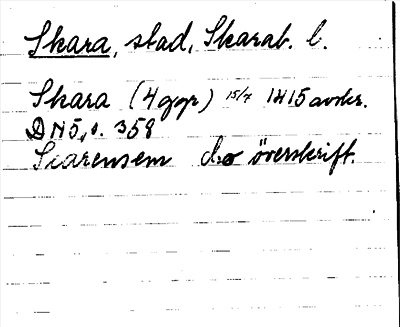 Skara, stad, Skarab. l.
Skara (4 ggr) 15/7 1415 avskr.
DN5, s. 358
Scarensem d:o överskrift.